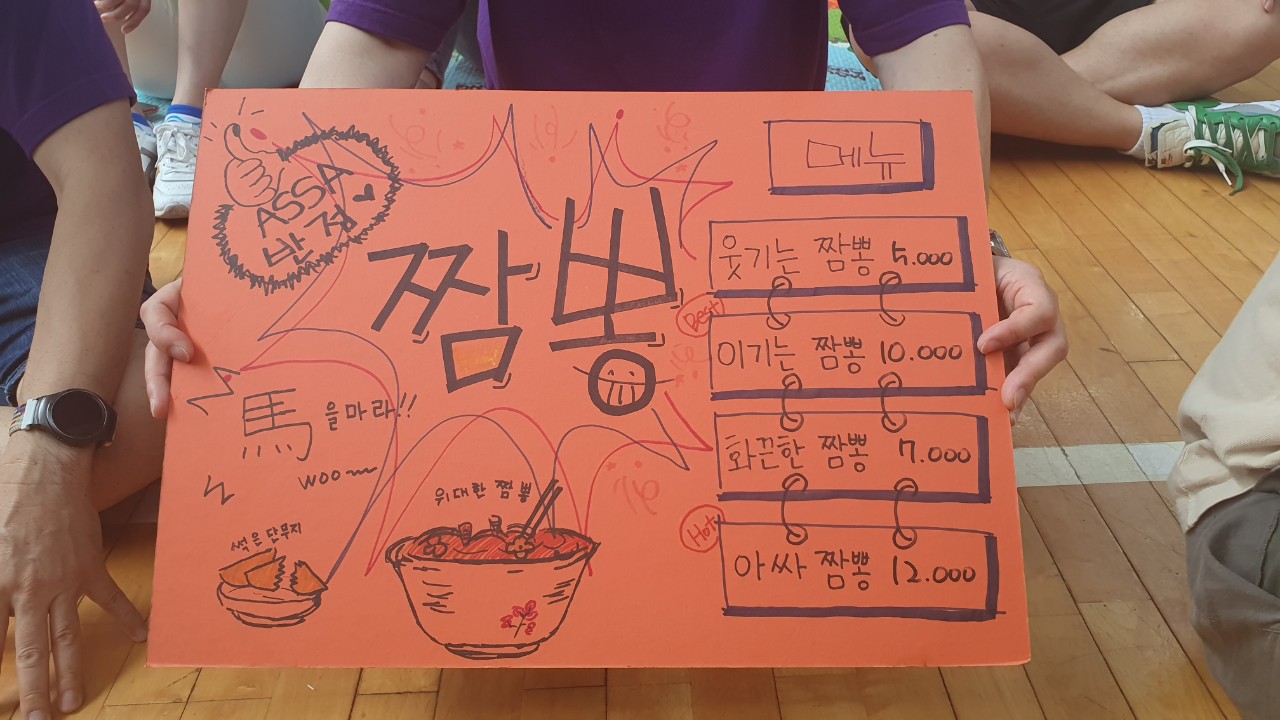 ASSA
반점
짬뽕
馬을마라!!
woo~
썩은단무지
위대한 짬뽕
메뉴
웃기는 짬뽕 5.000
Best
이기는 짬뽕 10.000
화끈한 짬뽕 7.000
Hot
아싸 짬뽕 12.000